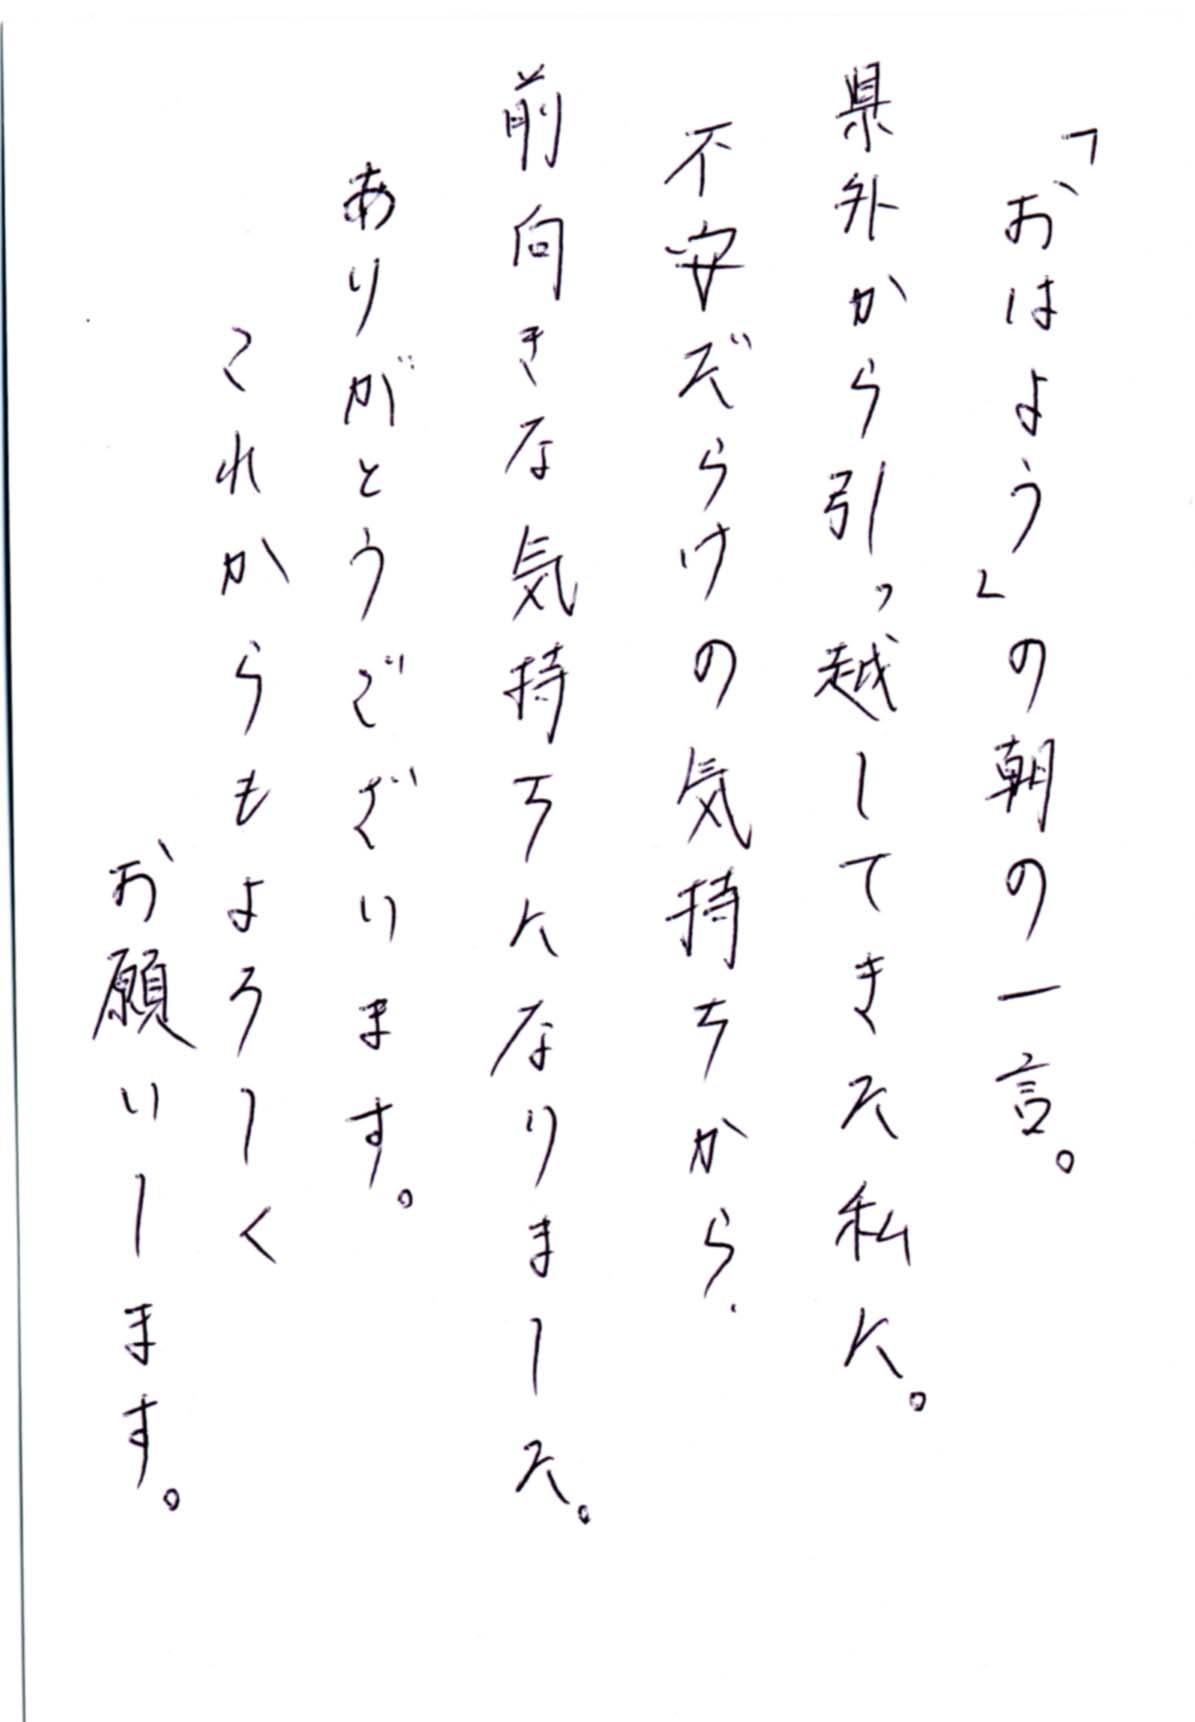 「おはよう」の朝の一言。
県外から引っ越してきた私に。
不安だらけの気持ちから、
前向きな気持ちになりました。
ありがとうございます。
これからもよろしく
お願いします。